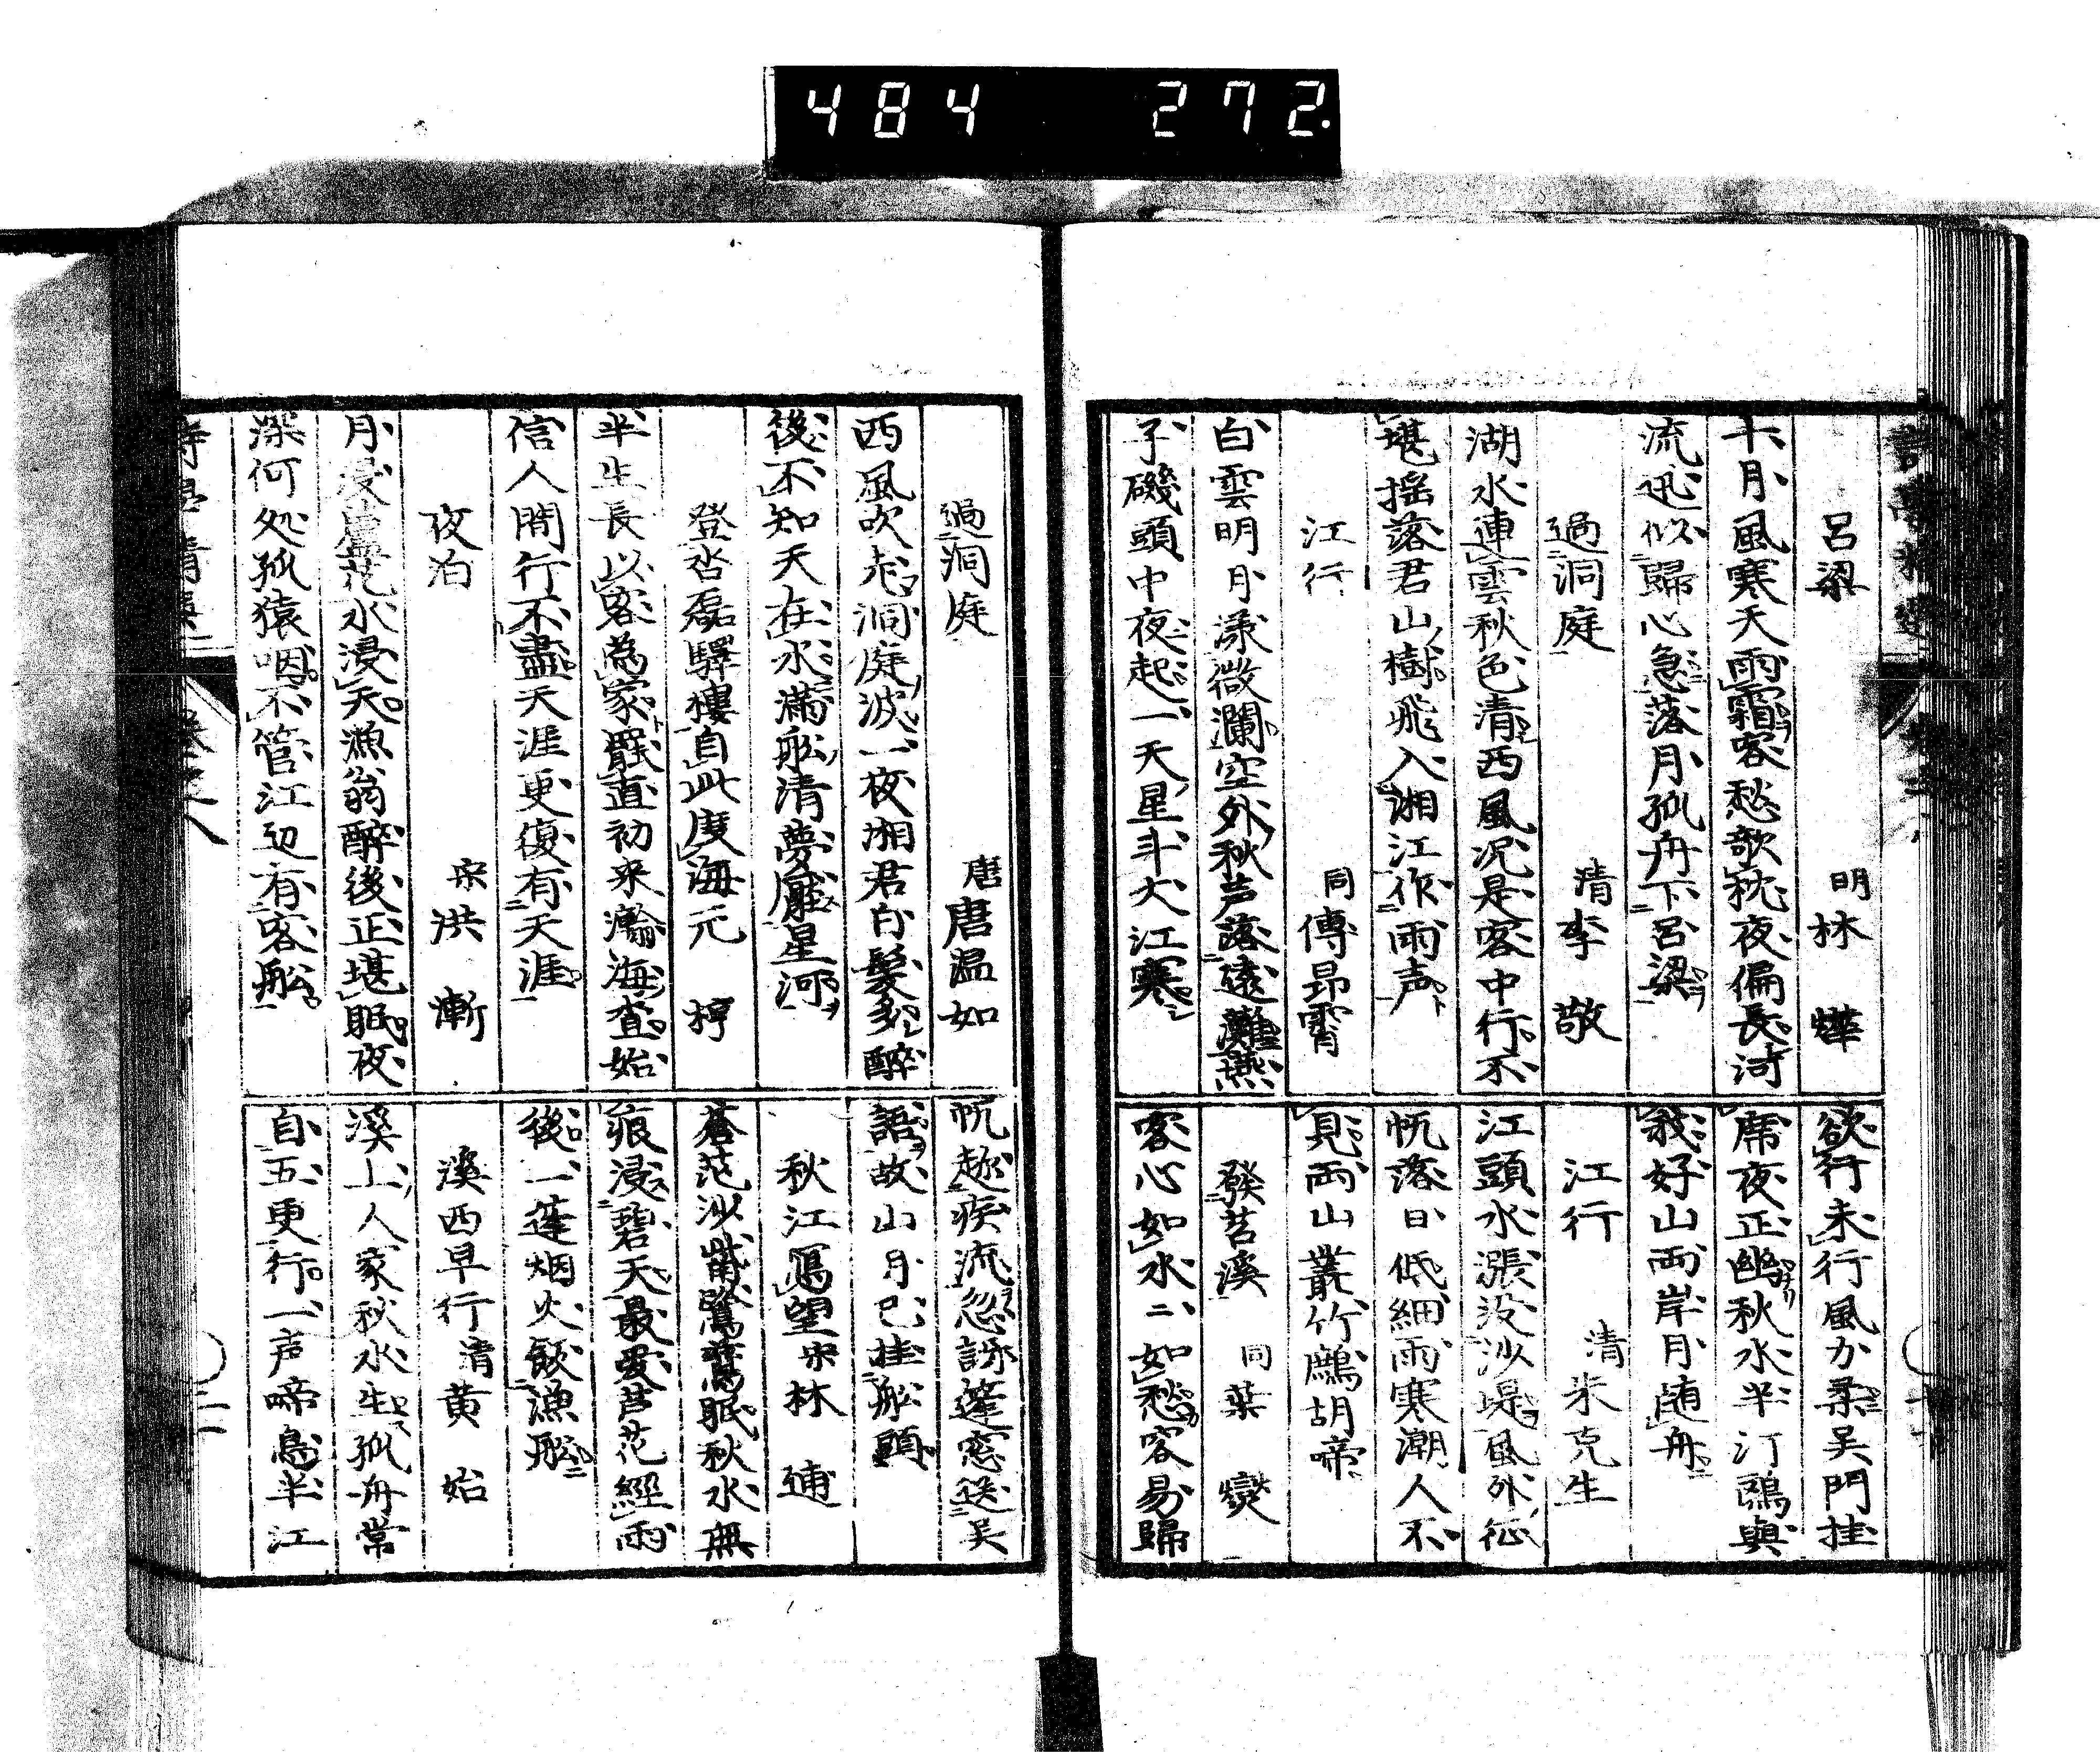 484 272.
呂梁 明林燁
十月風寒天雨霜客愁歌枕夜偏長河
流迅似歸心急落月孤舟下呂梁
過洞庭 清李敬
湖水連雲秋色清西風况是客中行不
堪揺落君山樹飛入湘江作雨声
江行 同傳昂霄
白雲明月漾微瀾空外秋芦落遠灘燕
子磯頭中夜起一天星斗大江寒
欲行未行風力柔吳門挂
席夜正幽秋水半汀鷗與
我好山両岸月随舟
江行 清朱克生
江頭水漲没沙堤風外征
帆落日低細雨寒潮人不
見両山叢竹鷓胡啼
發苕溪 同葉燮
客心如水二如愁容易歸
過洞庭 唐唐温如
西風吹老洞庭波一夜湘君白髪多醉
後不知天在水滿舩清夢壓星河
登沓磊驛樓自此度海元 㮙
半生長以客為家罷直初来瀚海査始
信人間行不盡天涯更復有天涯
夜泊 宋洪漸
月浸蘆花水浸天漁翁醉後正堪眠夜
深何処孤猿咽不管江辺有客舩
帆趂疾流忽訝篷窓送吳
語故山月已挂舩頭
秋江寫望宋林逋
蒼茫沙觜鷺鷥眠秋水無
痕浸碧天最愛芦花經雨
後一蓬烟火飯漁舩
溪西早行清黄始
溪上人家秋水生孤舟常
自五更行一声啼鳥半江